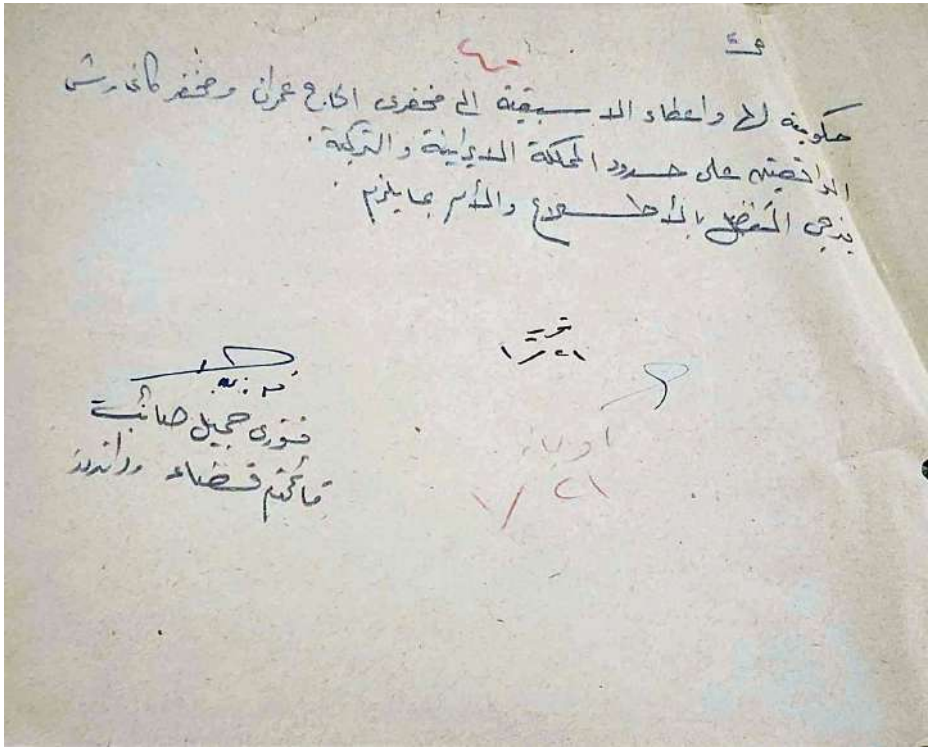 حكومية لها واعطاء الاسبقية الى مخفرى الحاج عمران ومخفر كانى رش
الواقعتين على حدود المملكة الايرانية والتركية .
يرجى التفضل بالأطلاع والأمر بما يلزم .
تحرير
٢١/١
فوزى جميل صائب
قائمقام قضاء رواندوز
٢١/١